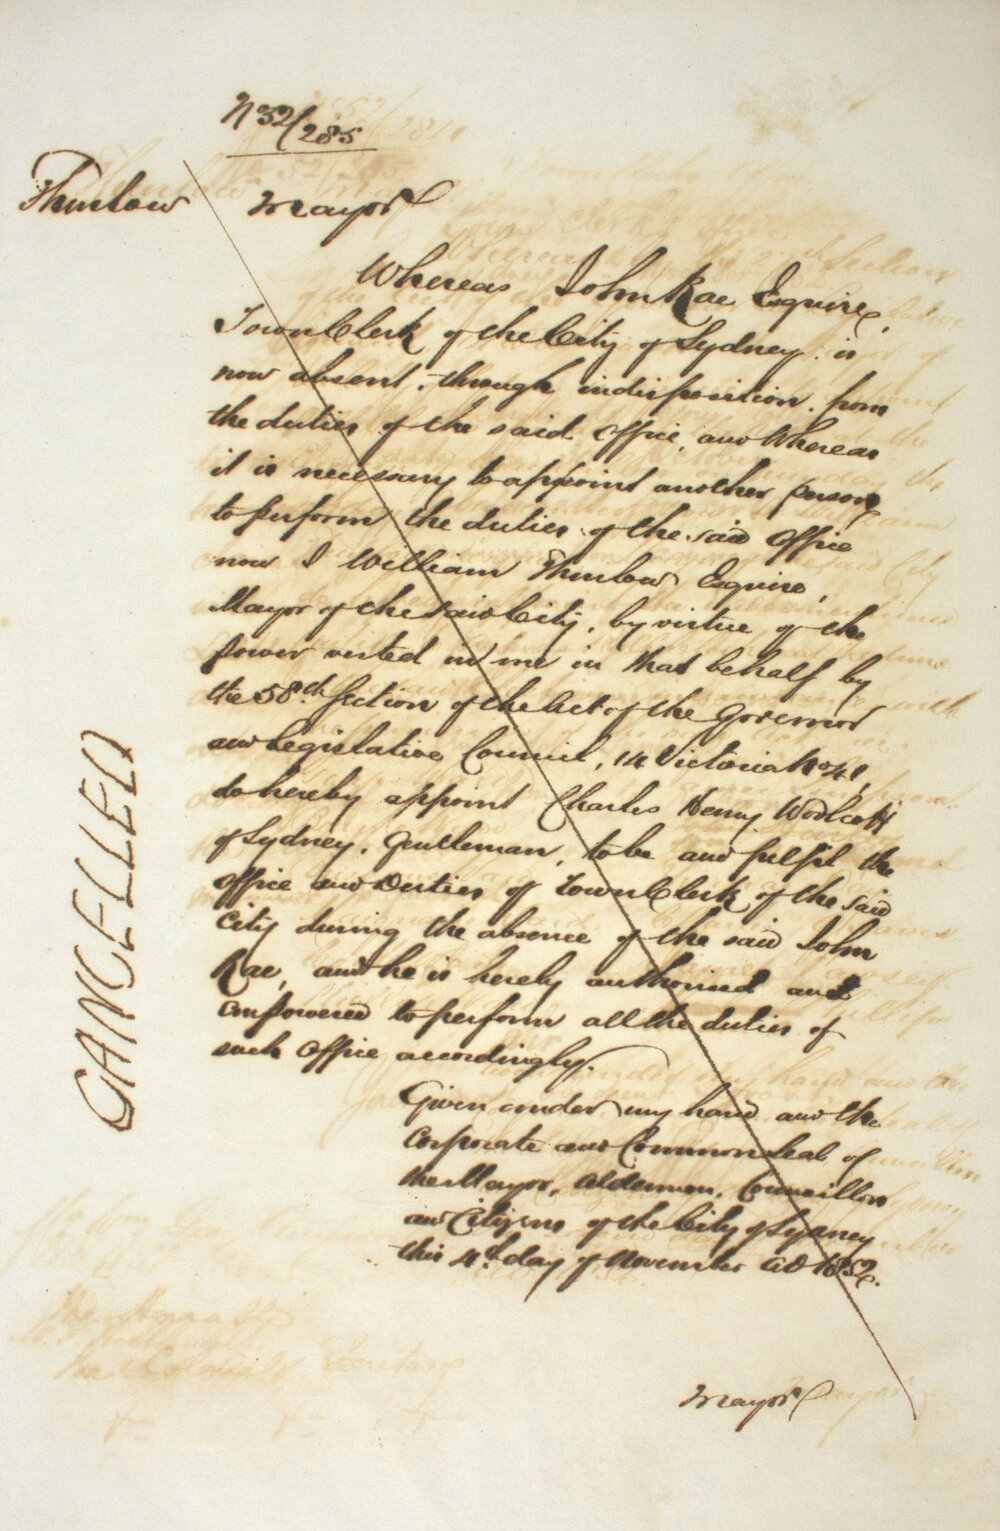 No 52/285
Thurlow
Mayor
Whereas John Rae Esquire,
Town Clerk of the City of Sydney is
now absent, through indisposition, from
the duties of the said Office, and Whereas
it is necessary to appoint another person
to perform the duties of the said Office
now I William Thurlow Esquire,
Mayor of the said City, by virtue of the
power vested in me in that behalf by
the 58th Section of the Act of the Governor
and Legislative Council, 14 Victoria No 41,
do hereby appoint Charles Henry Woolcott
of Sydney, Gentleman, to be and fulfil the
Office and Duties of Town Clerk of the said
City during the absence of the said John
Rae, and he is hereby authorised and
empowered to perform all the duties of
such Office accordingly.
Given under my hand and the
Corporate and Common Seal of
the Mayor, Aldermen, Councillors
and Citizens of the City of Sydney
this 4th day of November AD 1852.
Mayor
CANCELLED